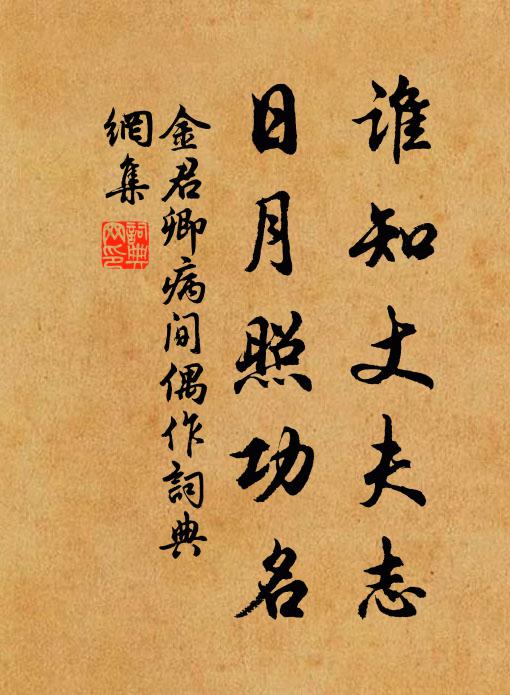 谁知丈夫志
日月照功名
金君卿病间偶作詞典
網集
詞典網印